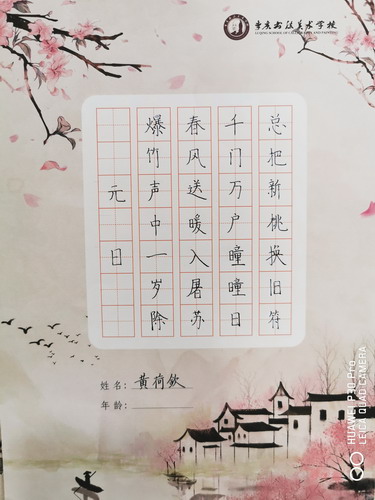 李庆书法美术学校
LI QING SCHOOL OF CALLIGRAPHY AND PAINTING
元日
爆竹声中一岁除
春风送暖入屠苏
千门万户曈曈日
总把新桃换旧符
姓名：黄荷钦
年龄：
HUAWEI P30 Pro
LEICA QUAD CAMERA